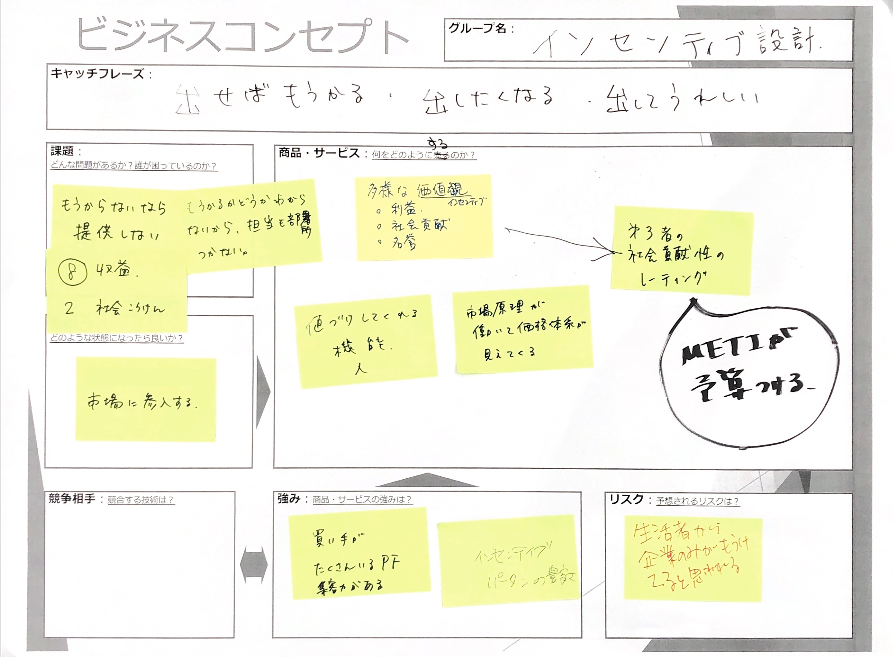 ビジネスコンセプト
グループ名：
インセンティブ設計.
キャッチフレーズ：
出せばもうかる・出したくなる・出してうれしい
課題：
どんな問題があるか？誰が困っているのか？
もうからないなら
提供しない
もうかるかどうかわから
ないから、担当も部署も
つかない。
⑧ 収益.
2 社会こうけん
どのような状態になったら良いか？
市場に参入する.
商品・サービス：何をどのように売るのか？
する
多様な価値観
インセンティブ
○ 利益.
○ 社会貢献
○ 名誉
第3者の
社会貢献性の
レーティング
値づけしてくれる
機能.
人
市場原理が
働いて価格体系が
見えてくる
METIが
予算つける.
競争相手：競合する技術は？
強み：商品・サービスの強みは？
買い手が
たくさんいるPF
集客力がある
インセンティブ
パターンの豊富さ
リスク：予想されるリスクは？
生活者から
企業のみがもうけ
てると思われる